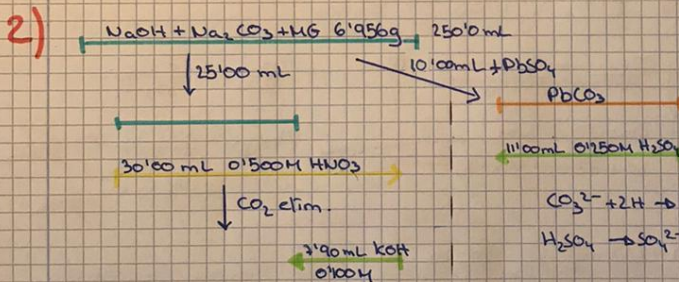 2)
NaOH + Na₂CO₃ + MG 6'956g 250'0 mL
25'00 mL
10'00mL + PbSO₄
PbCO₃
30'00 mL 0'500M HNO₃
11'00mL 0'250M H₂SO₄
CO₂ elim.
CO₃²⁻ + 2H →
H₂SO₄ → SO₄²⁻
7'90mL KOH
0'100M